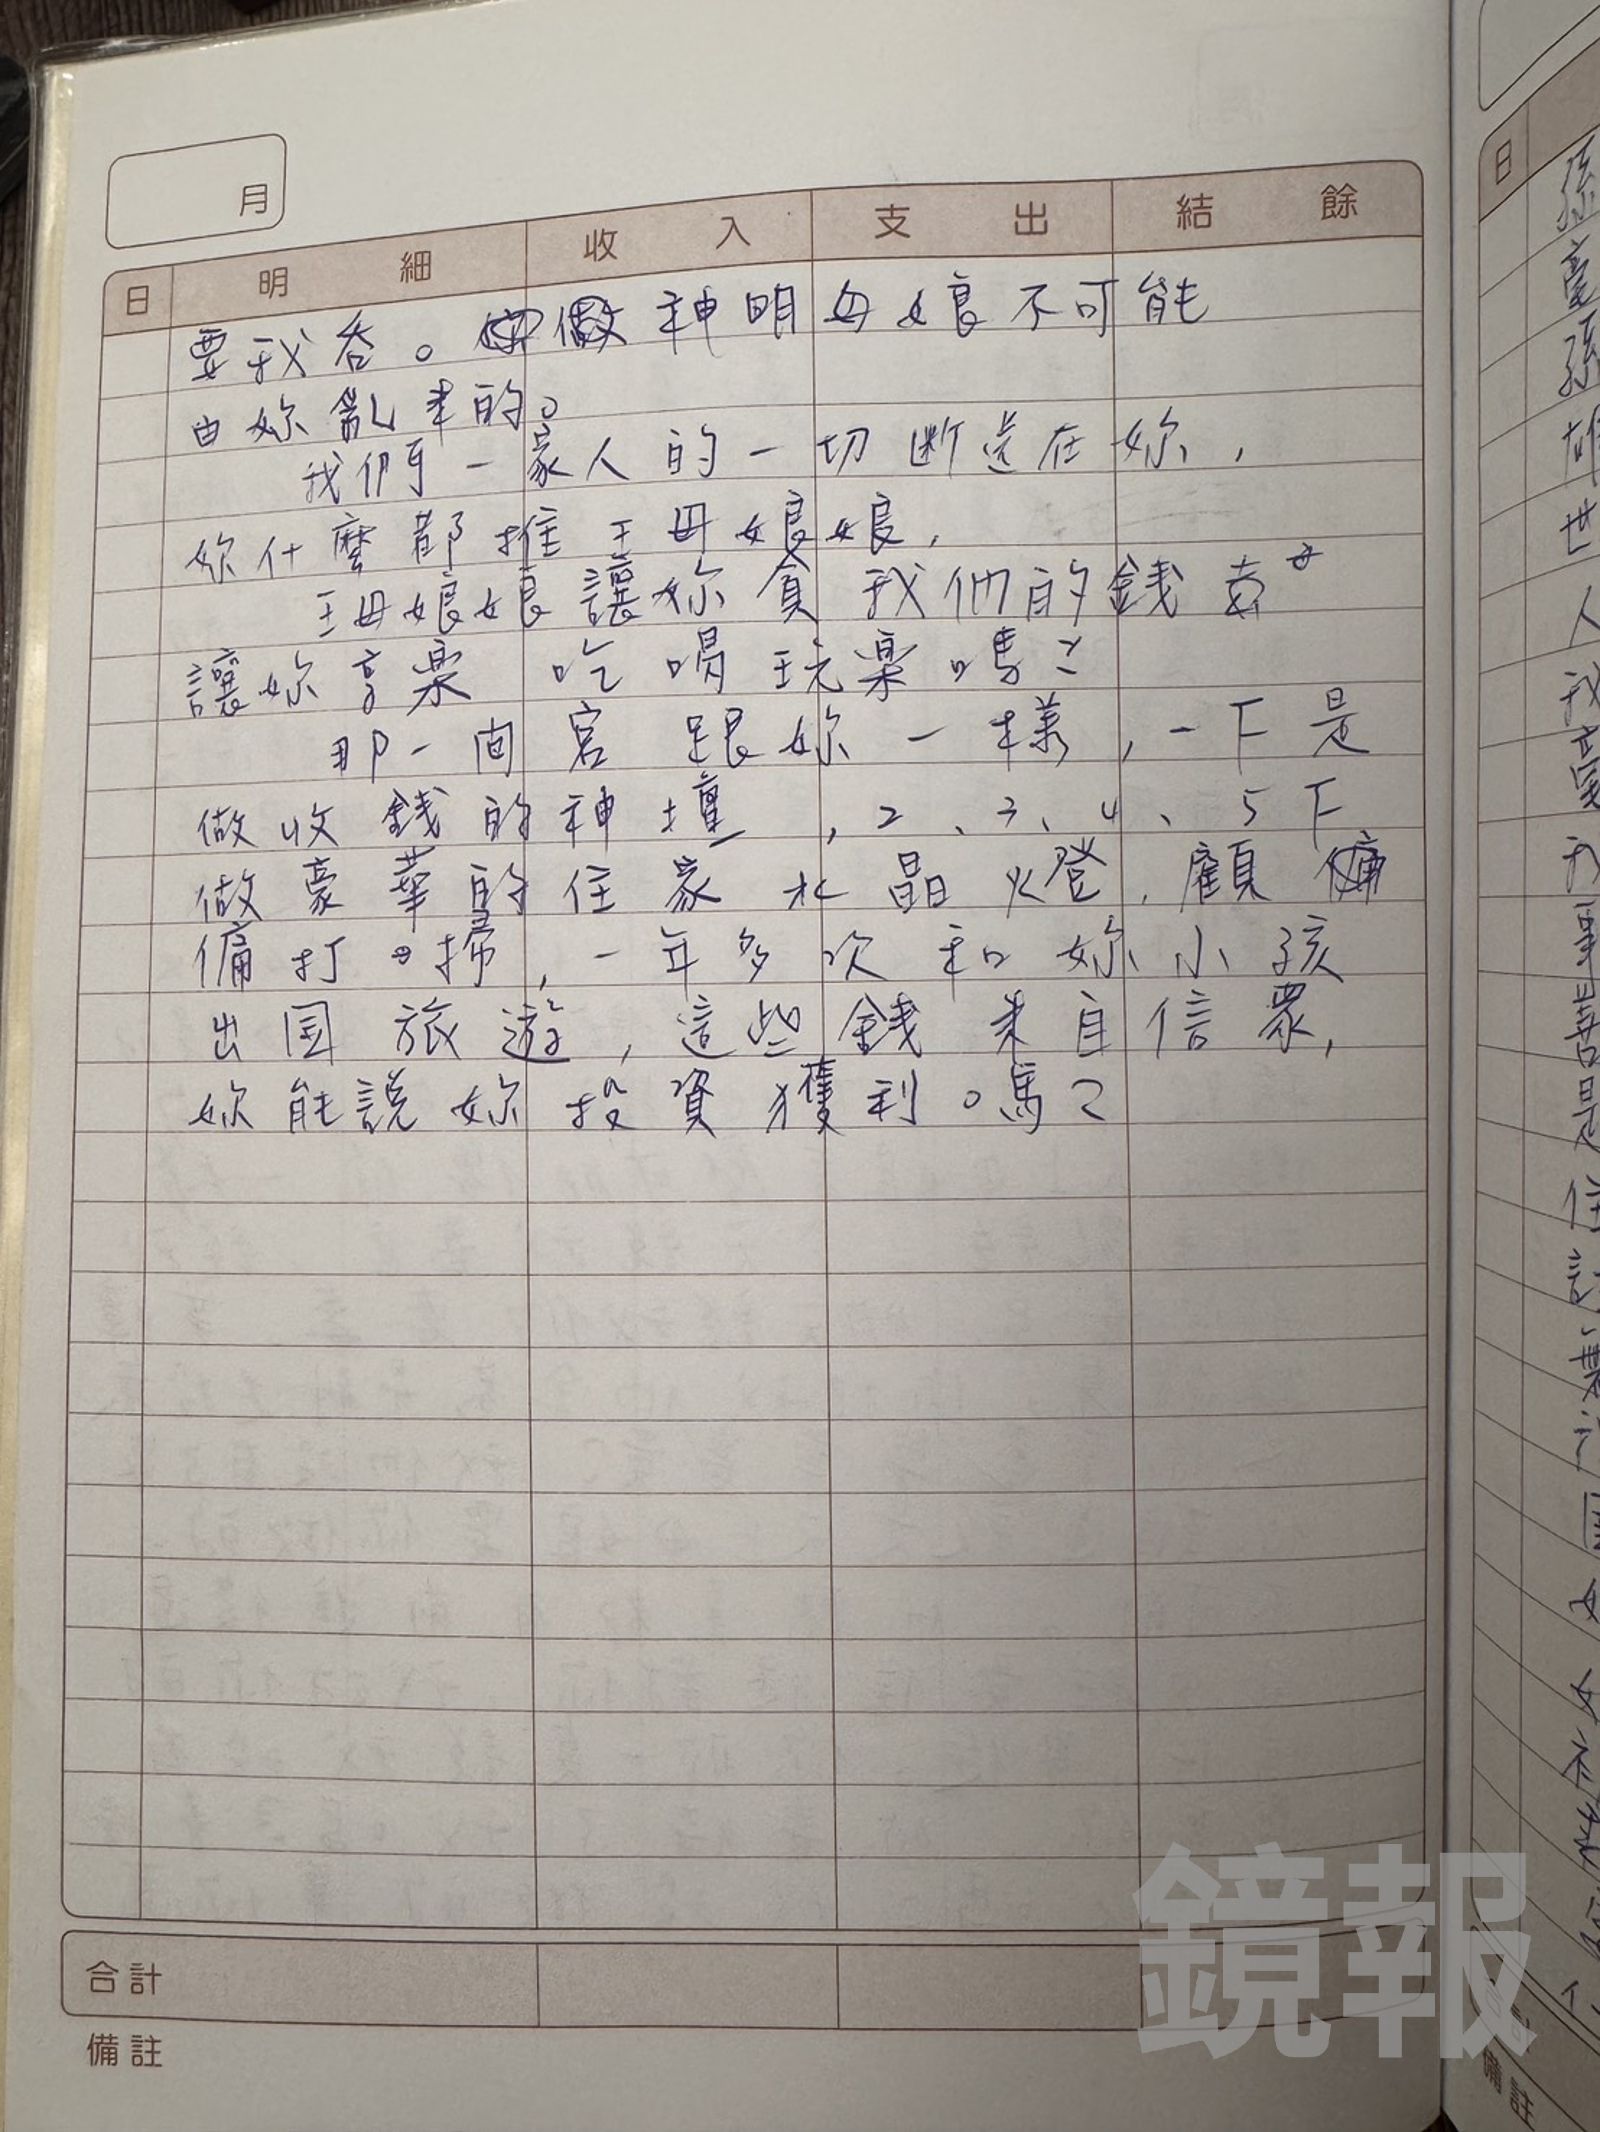 月
日 明細 收入 支出 結餘
要我吞。做神明母娘不可能
由妳亂來的。
我們一家人的一切斷送在妳，
妳什麼都推王母娘娘，
王母娘娘讓妳貪我们的錢去
讓妳享樂 吃喝玩樂嗎？
那一间宮跟妳一樣，一F是
做收錢的神壇，2、3、4、5F
做豪華的住家水晶燈，顧
傭打掃，一年多次和妳小孩
出国旅遊，這些錢來自信眾，
妳能說妳投資獲利。嗎？
合計
備註
日
孫
孫
雄
世
人
我
是
住
女
備註
鏡報